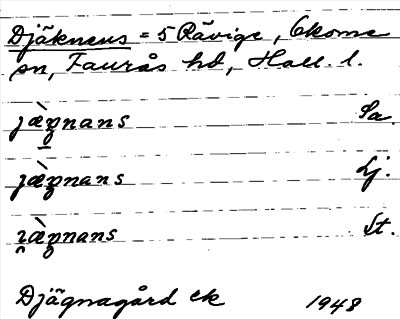 Djäkneus = 5 Rävige, Ekome
sn, Faurås hd, Hall. l.
jæ̀gnans Sa.
jæ̀gnans Lj.
ɿæ̀gnans St.
Djägnagård ek 1948